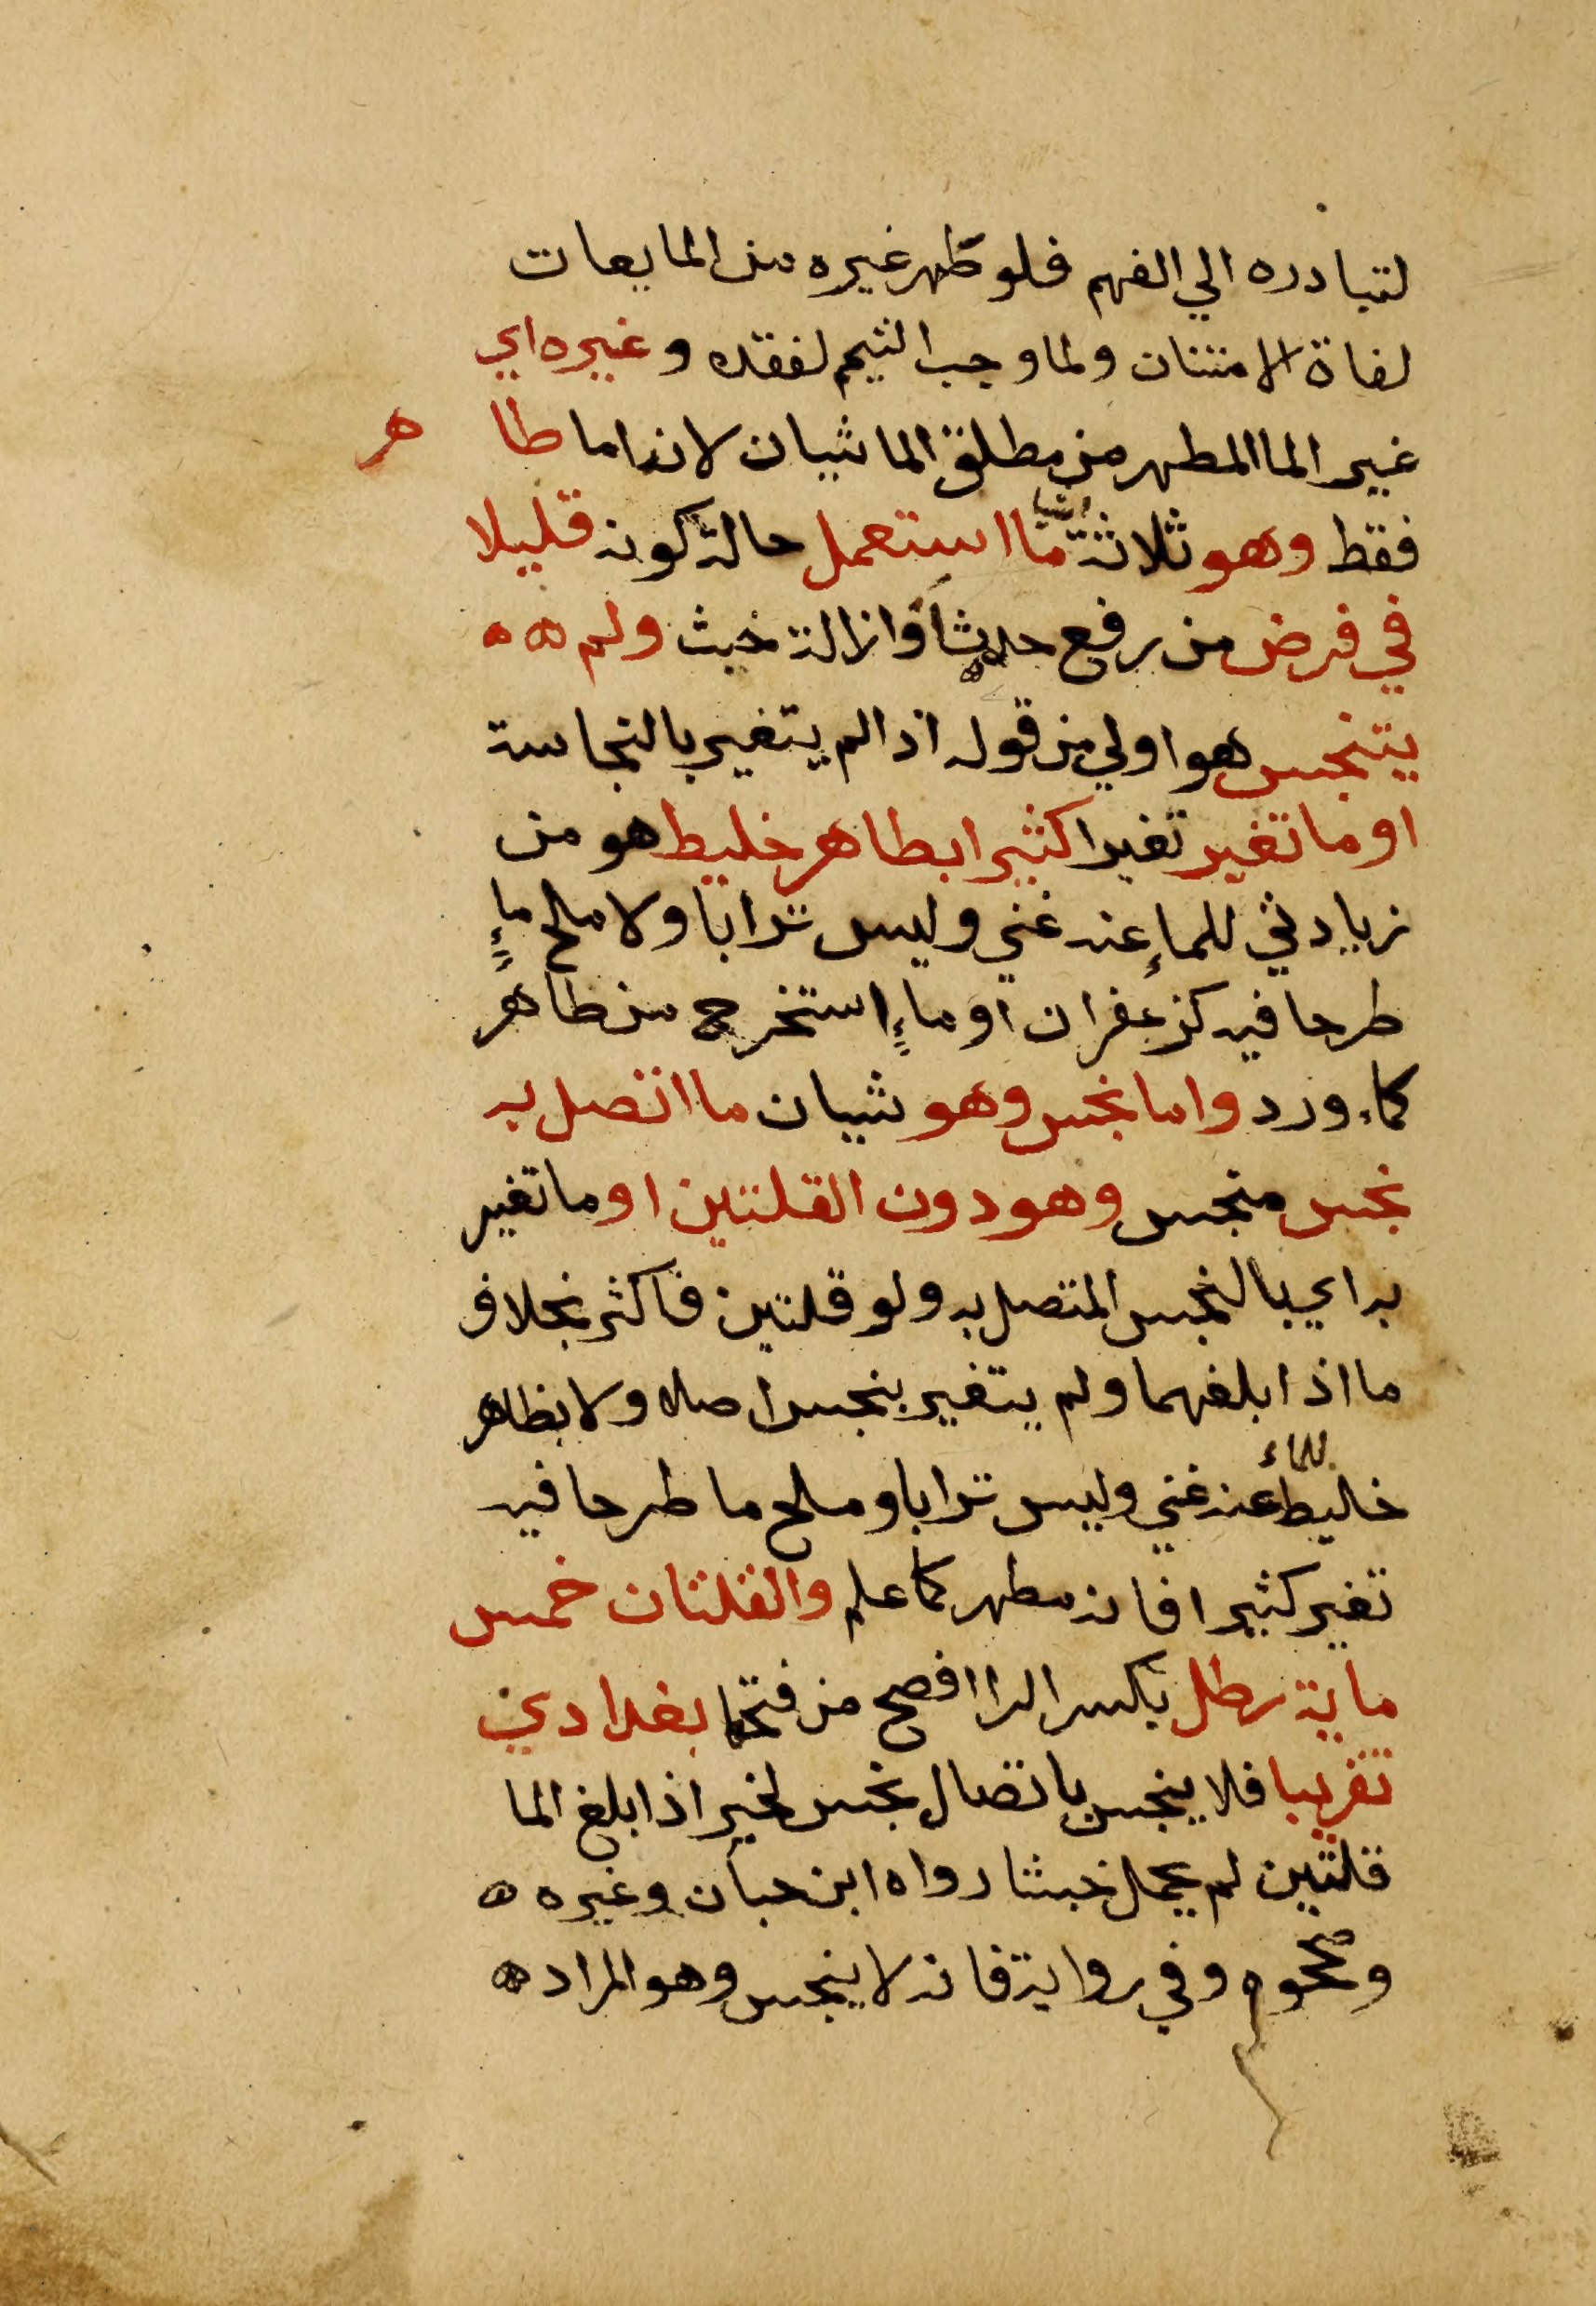 لتبادره الي الفهم فلو طهر غيره من المايعات
لفاة الامتنان ولما وجب التيمم لفقده وغيره اي
غير الما المطهر من مطلق الما شيان لانه اما طا هر
فقط وهو ثلاثة اشيا ما استعمل حالة كونه قليلا
في فرض من رفع حدث او ازالة خبث ولم
يتنجس هو اولي من قوله اذا لم يتغير بالنجاسة
او ما تغير تغيرا كثيرا بطاهر خليط هو من
زيادتي للماء عنه غني وليس ترابا ولا ملح ماء
طرحا فيه كزعفران او ماء استخرج من طاهر
كماء ورد واما نجس وهو شيان ما اتصل به
نجس منجس وهو دون القلتين او ما تغير
به اي بالنجس المتصل به ولو قلتين فاكثر بخلاف
ما اذا بلغهما ولم يتغير بنجس اصلا ولا بطاهر
خليط للماء عنه غني وليس ترابا وملح ما طرحا فيه
تغير كثيرا فانه مطهر كما علم والقلتان خمس
ماية رطل بكسر الرا افصح من فتحها بغدادي
تقريبا فلا ينجس باتصال نجس لخبر اذا بلغ الما
قلتين لم يحمل خبثا رواه ابن حبان وغيره
وصححوه وفي رواية فانه لا ينجس وهو المراد